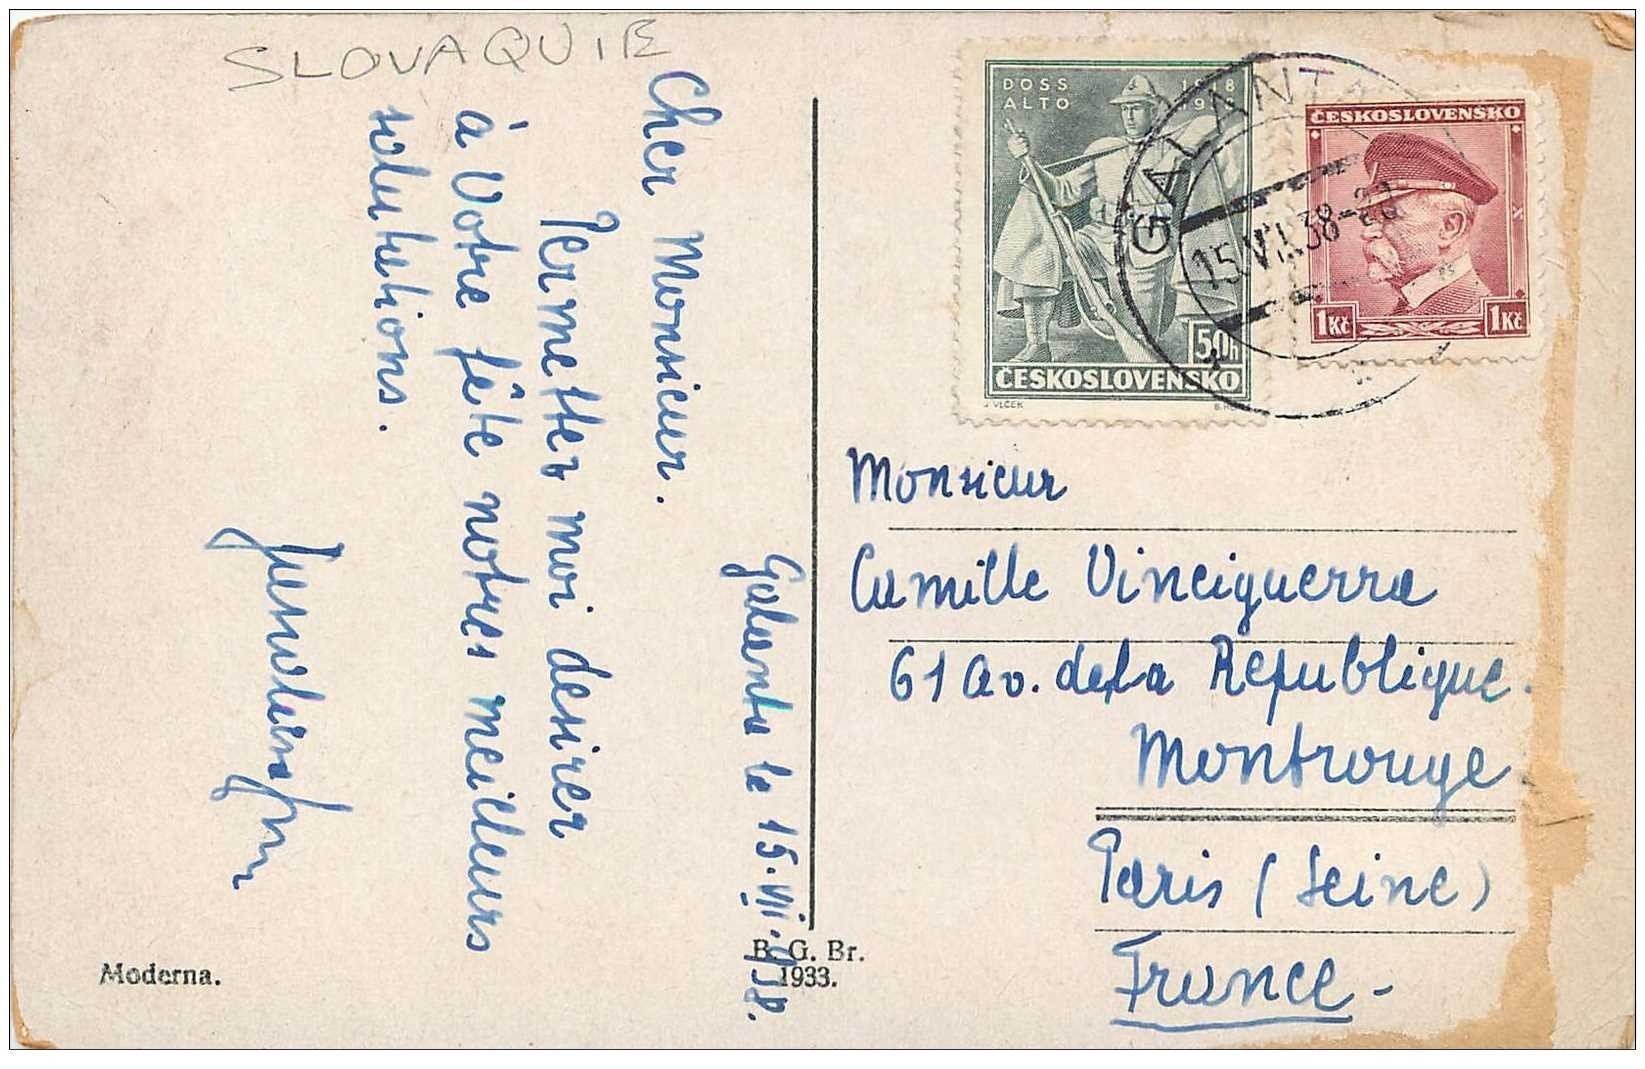 SLOVAQUIE
Galanta le 15.VII.938.
Cher Monsieur.
Permetter moi desirer
à Votre fête notres meilleurs
solutations.
DOSS
ALTO
1918
1938
50h
ČESKOSLOVENSKO
J. VLČEK
GALANTA
15.VII.38-20
ČESKOSLOVENSKO
1Kč
1Kč
Monsieur
Camille Vinciguerra
61 av. de la Republique.
Montrouge
Paris (Seine)
France -
Moderna.
B. G. Br.
1933.